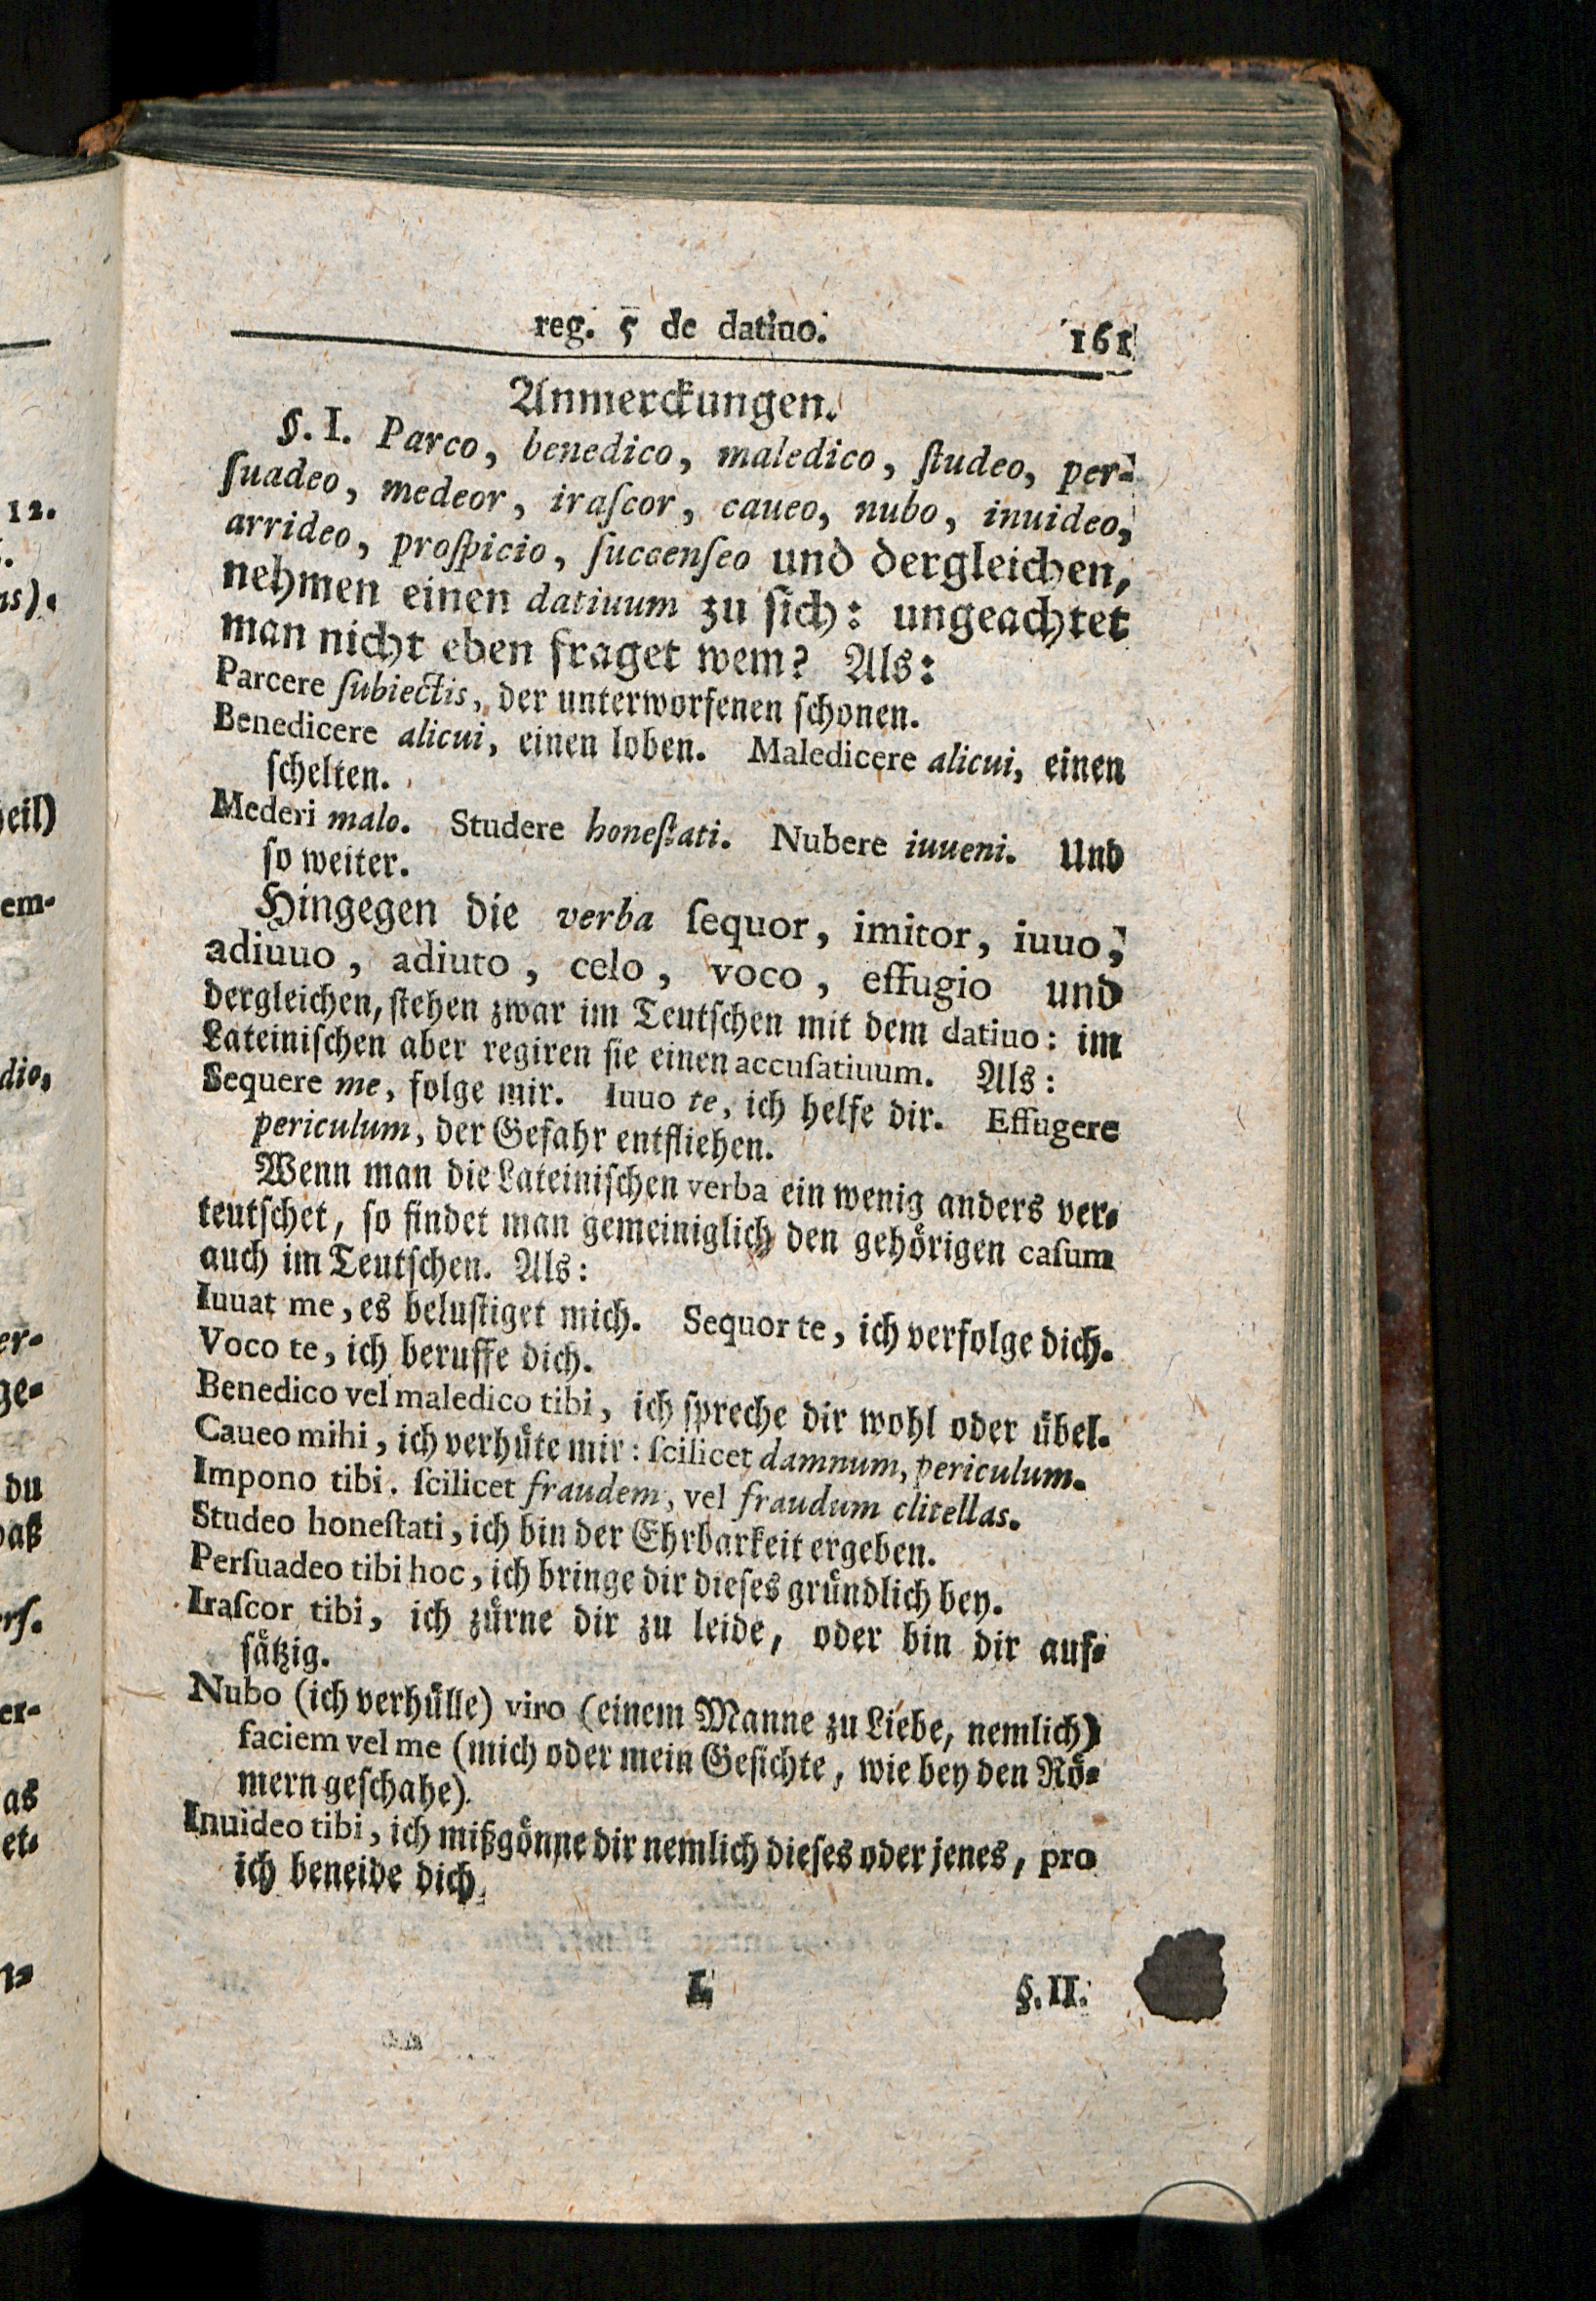 reg. 5 de datiuo. 161
Anmerckungen.
§. I. Parco, benedico, maledico, ſtudeo, per-
ſuadeo, medeor, iraſcor, caueo, nubo, inuideo,
arrideo, proſpicio, ſuccenſeo und dergleichen,
nehmen einen datiuum zu ſich: ungeachtet
man nicht eben fraget wem? Als:
Parcere ſubiectis, der unterworfenen ſchonen.
Benedicere alicui, einen loben. Maledicere alicui, einen
ſchelten.
Mederi malo. Studere honeſtati. Nubere iuueni. Und
ſo weiter.
Hingegen die verba ſequor, imitor, iuuo,
adiuuo, adiuto, celo, voco, effugio und
dergleichen, ſtehen zwar im Teutſchen mit dem datiuo: im
Lateiniſchen aber regiren ſie einen accuſatiuum. Als:
Sequere me, folge mir. Iuuo te, ich helfe dir. Effugere
periculum, der Gefahr entfliehen.
Wenn man die Lateiniſchen verba ein wenig anders ver-
teutſchet, ſo findet man gemeiniglich den gehörigen caſum
auch im Teutſchen. Als:
Iuuat me, es beluſtiget mich. Sequor te, ich verfolge dich.
Voco te, ich beruffe dich.
Benedico vel maledico tibi, ich ſpreche dir wohl oder übel.
Caueo mihi, ich verhüte mir: ſcilicet damnum, periculum.
Impono tibi. ſcilicet fraudem, vel fraudum clitellas.
Studeo honeſtati, ich bin der Ehrbarkeit ergeben.
Perſuadeo tibi hoc, ich bringe dir dieſes gründlich bey.
Iraſcor tibi, ich zürne dir zu leide, oder bin dir auf-
ſätzig.
Nubo (ich verhülle) viro (einem Manne zu Liebe, nemlich)
faciem vel me (mich oder mein Geſichte, wie bey den Rö-
mern geſchahe).
Inuideo tibi, ich mißgönne dir nemlich dieſes oder jenes, pro
ich beneide dich.
L §. II.